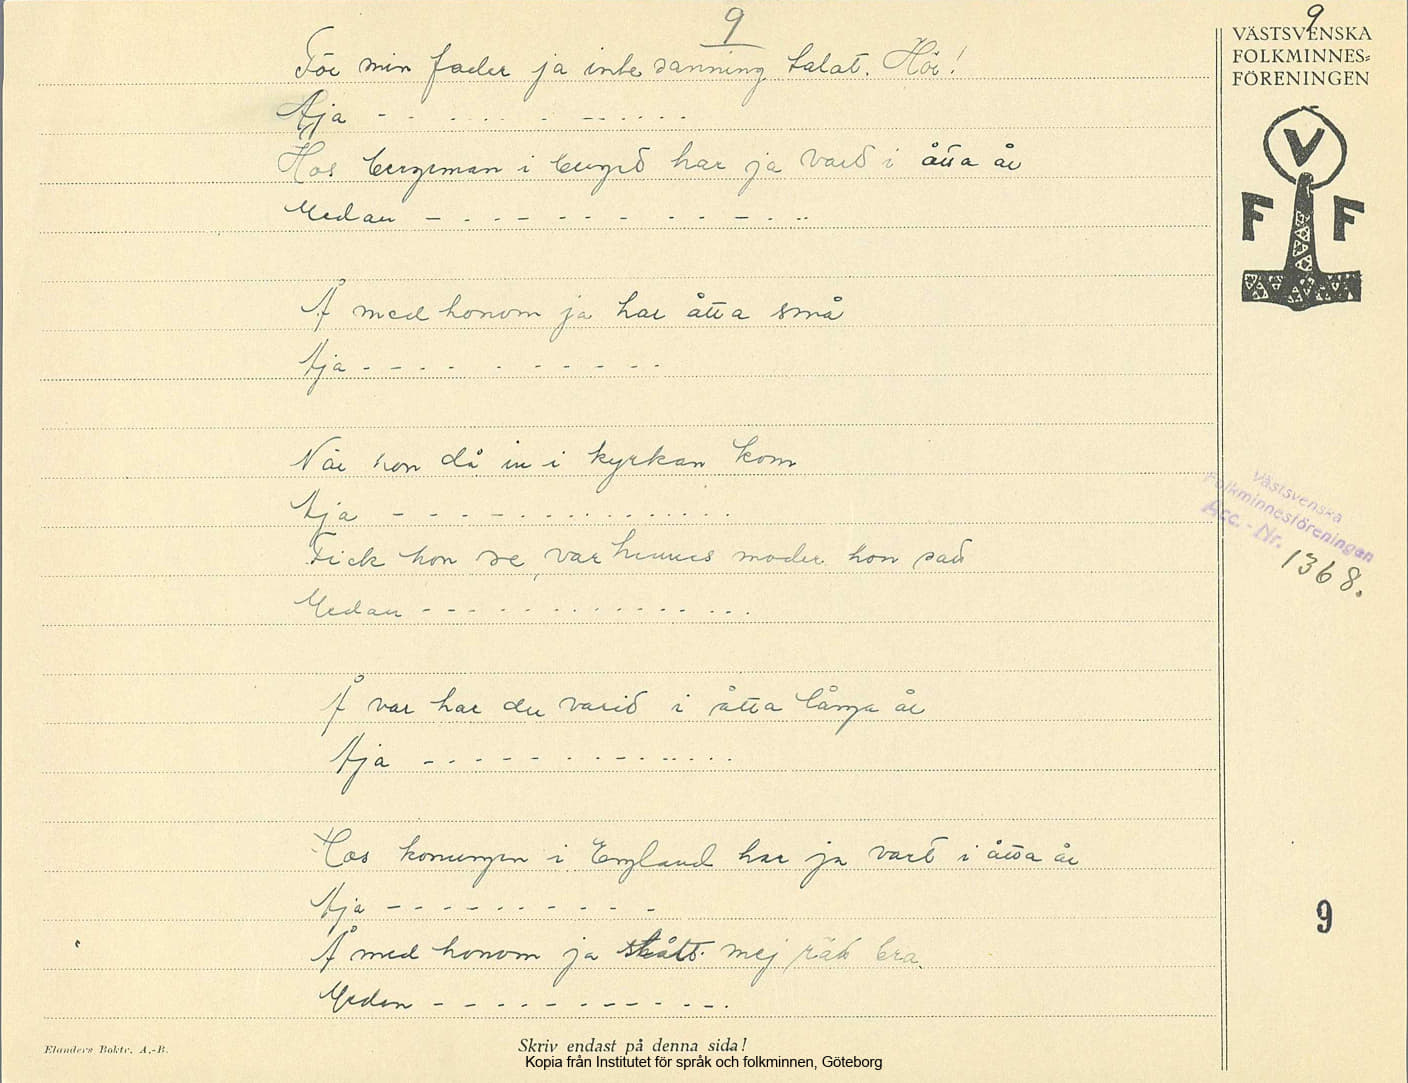 9
För min fader ja inte sanning talat. Hör!
Aja - - - - - - - - - - -
Hos bergeman i berged har ja varid i åtta år
Medan - - - - - - - - - - - -
Å med honom ja har åtta små
Aja - - - - - - - - - - -
När hon då in i kyrkan kom
Aja - - - - - - - - - - - - -
Fick hon se, var hennes moder hon satt
Medan - - - - - - - - - - - - -
Å var har du varid i åtta långa år
Aja - - - - - - - - - - - - -
Hos konungen i England har ja vart i åtta år
Aja - - - - - - - - - -
Å med honom ja mej rätt bra.
Medan - - - - - - - - - - - -
Elanders Boktr. A.-B.
Skriv endast på denna sida!
Kopia från Institutet för språk och folkminnen, Göteborg
9
VÄSTSVENSKA
FOLKMINNES=
FÖRENINGEN
V
F F
Västsvenska
Folkminnesföreningen
Acc.-Nr.
1368.
9